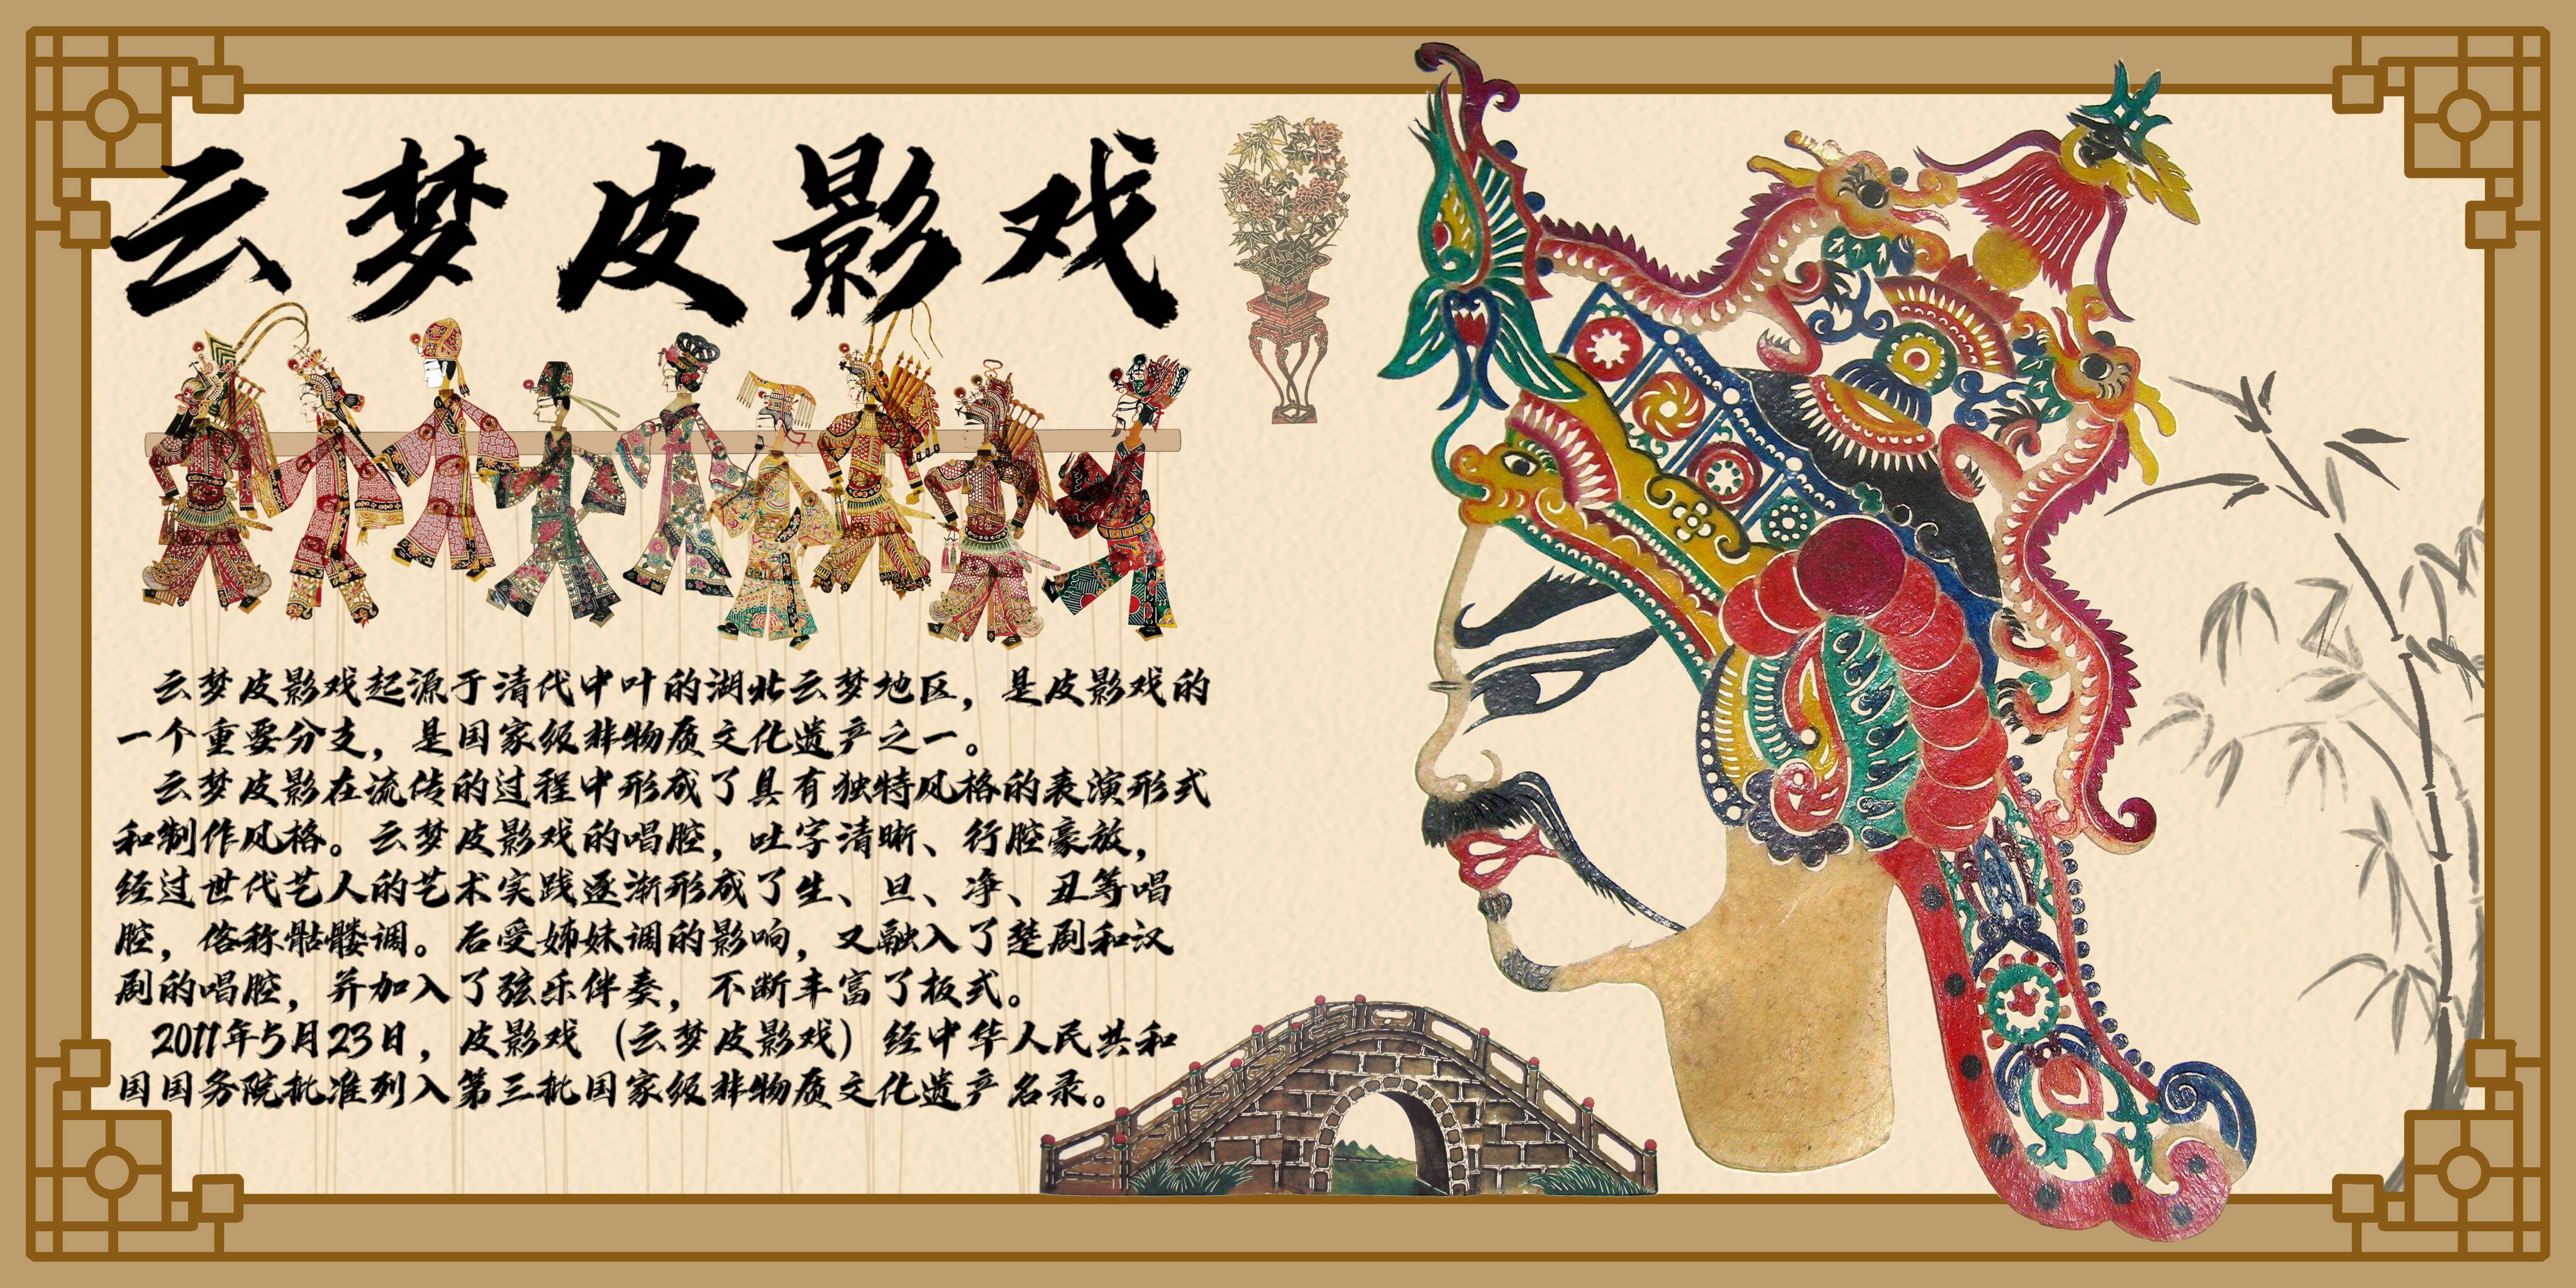 云梦皮影戏
云梦皮影戏起源于清代中叶的湖北云梦地区，是皮影戏的
一个重要分支，是国家级非物质文化遗产之一。
云梦皮影在流传的过程中形成了具有独特风格的表演形式
和制作风格。云梦皮影戏的唱腔，吐字清晰、行腔豪放，
经过世代艺人的艺术实践逐渐形成了生、旦、净、丑等唱
腔，俗称骷髅调。后受姊妹调的影响，又融入了楚剧和汉
剧的唱腔，并加入了弦乐伴奏，不断丰富了板式。
2011年5月23日，皮影戏（云梦皮影戏）经中华人民共和
国国务院批准列入第三批国家级非物质文化遗产名录。